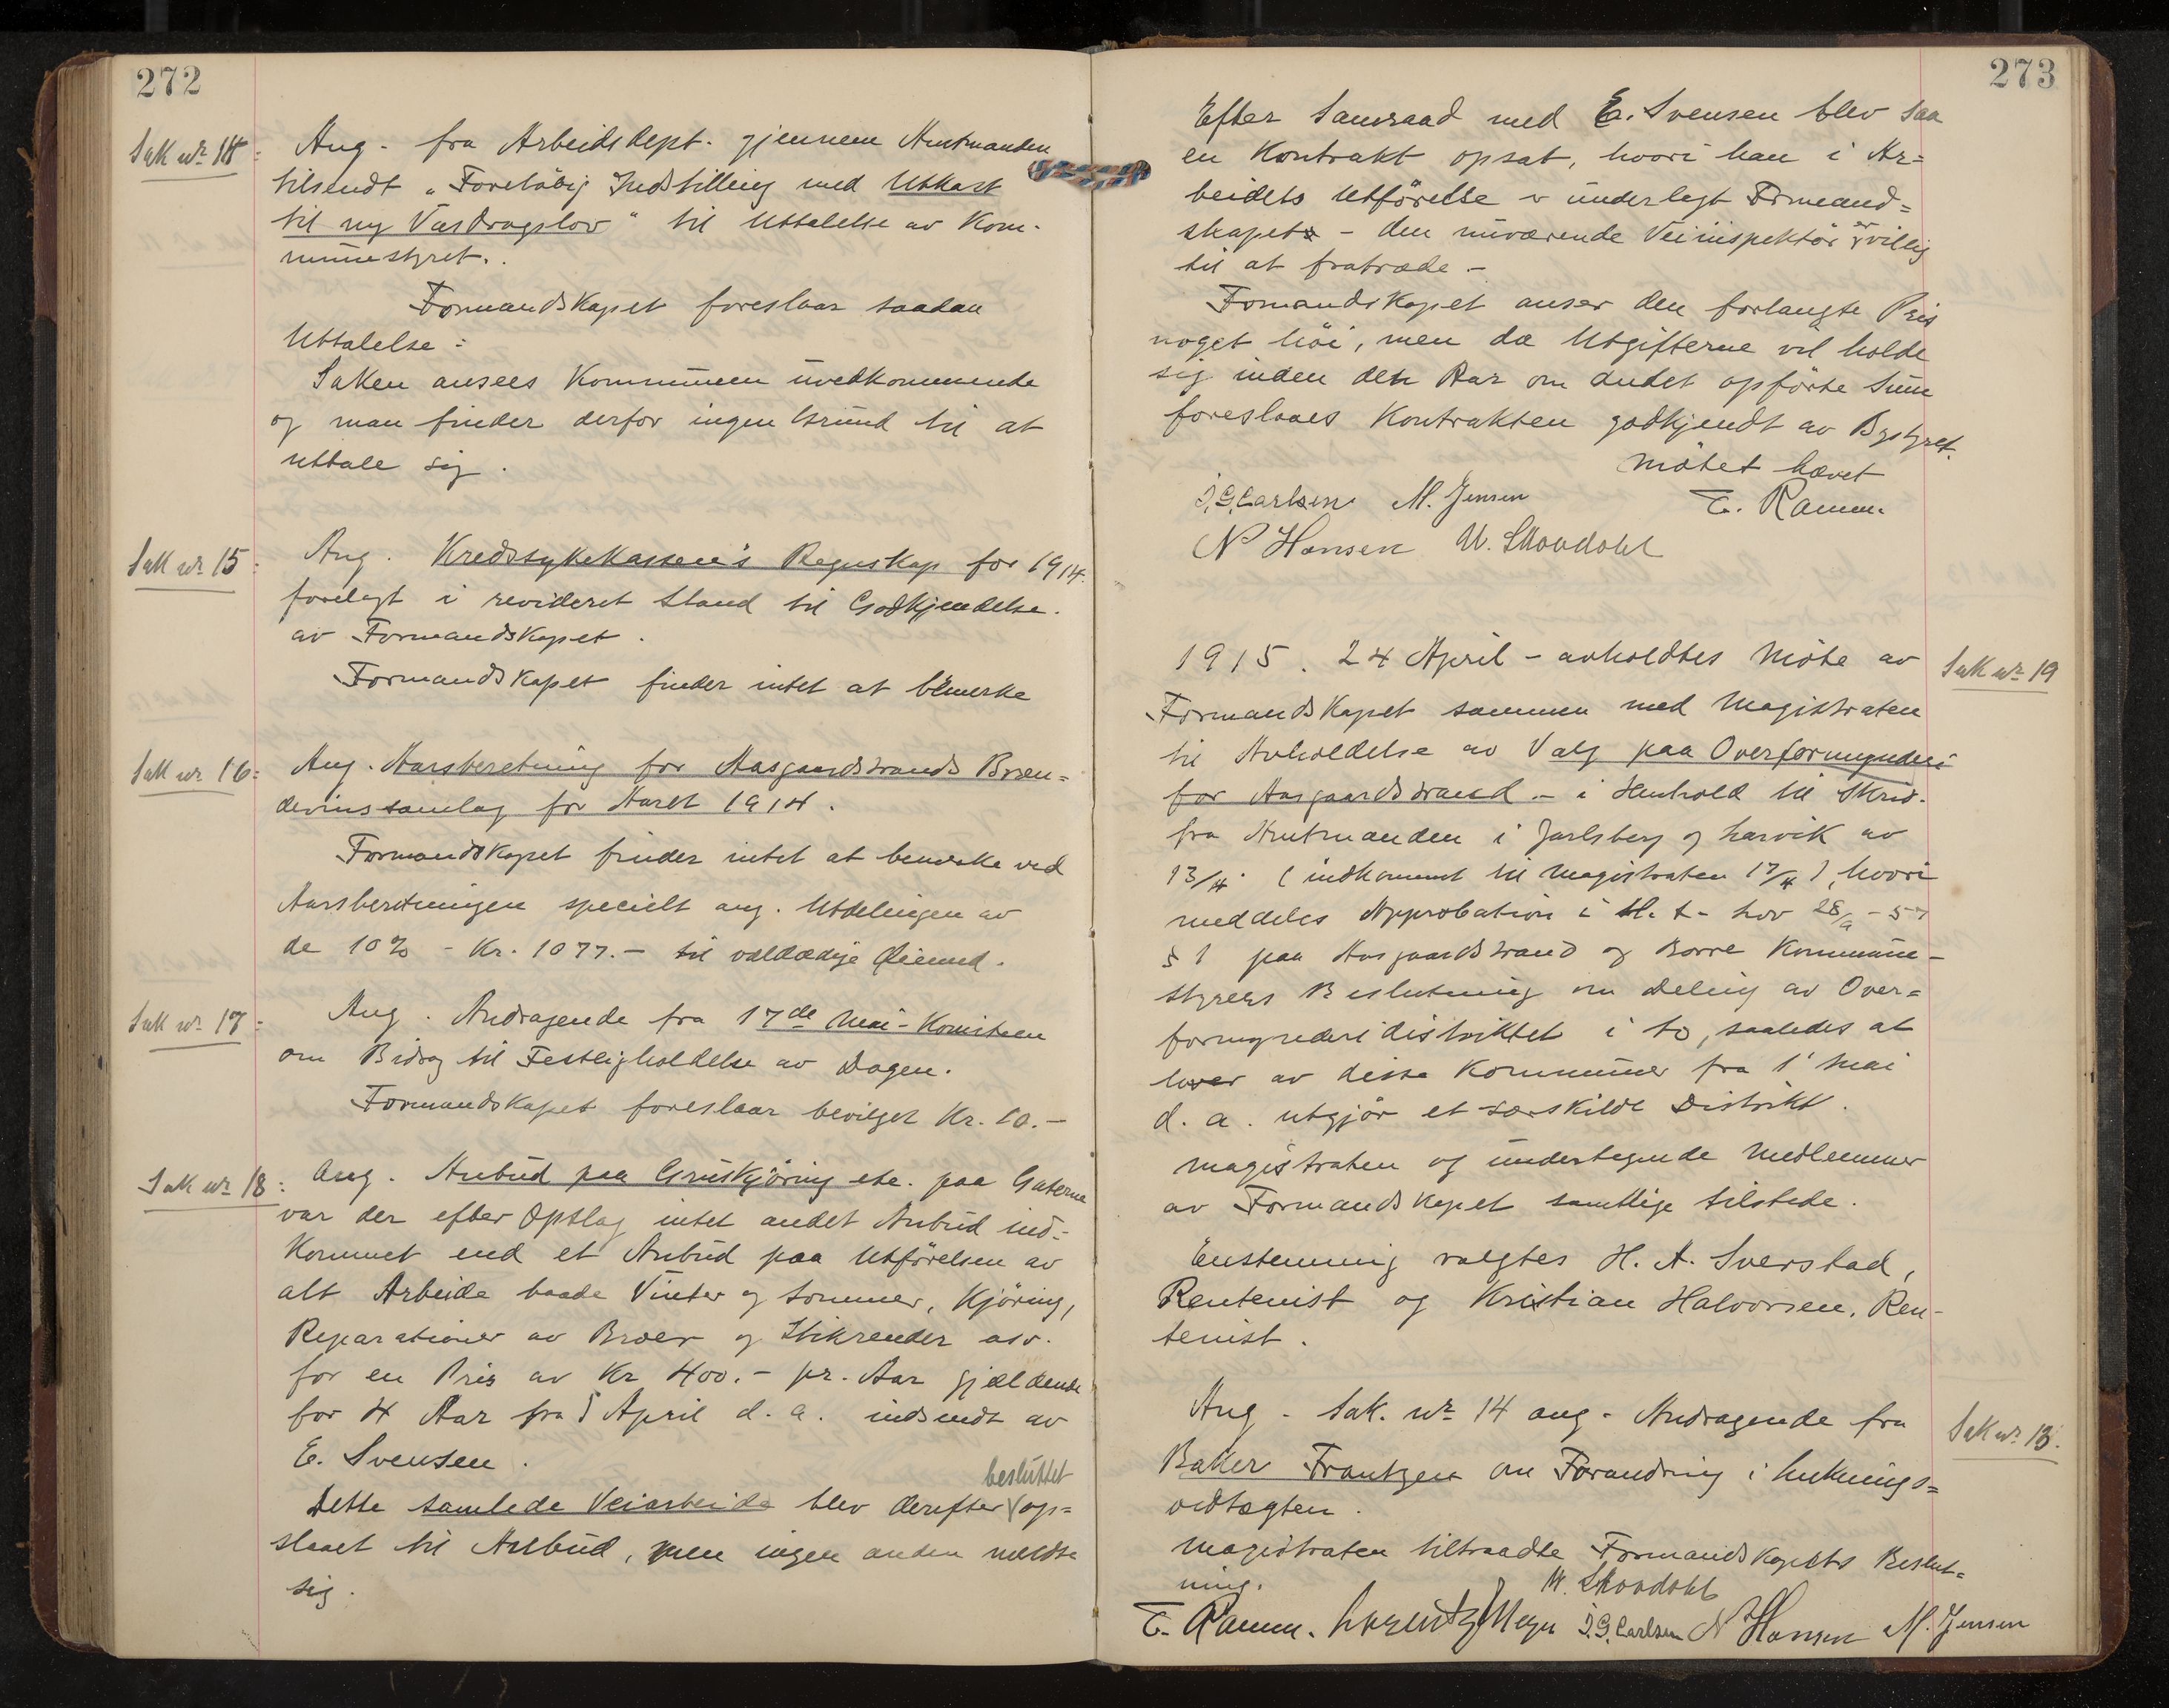 272
Sak nr 14:
Ang. fra Arbeidsdept. gjennem Amtmanden
tilsendt „Foreløbig Indstilling med Utkast
til ny Vasdragslov" til Uttalelse av Kom-
munestyret.
Formandskapet foreslaar saadan
Uttalelse:
Saken ansees Kommunen uvedkommende
og man finder derfor ingen Grund til at
uttale sig.
Sak nr 15:
Ang. Kredssykekassen's Regnskap for 1914.
forelagt i revideret Stand til Godkjendelse.
av Formandskapet.
Formandskapet finder intet at bemerke
Sak nr 16:
Ang. Aarsberetning for Aasgaardstrands Bræn-
devinssamlag for Aaret 1914.
Formandskapet finder intet at bemerke ved
Aarsberetningen specielt ang. Utdelingen av
de 10% - Kr. 1077.- til veldædige Øiemed.
Sak nr 17:
Ang. Andragende fra 17de Mai-Komiteen
om Bidrag til Festligholdelse av Dagen.
Formandskapet foreslaar bevilget Kr. 10.-
Sak nr 18:
Ang. Anbud paa Gruskjøring etc. paa Gaterne
var der efter Opslag intet andet Anbud ind-
kommet end et Anbud paa Utførelsen av
alt Arbeide baade Vinter og Sommer, Kjøring,
Reparationer av Broer og Stikrender osv.
for en Pris av Kr 400.- pr. Aar gjældende
for 4 Aar fra 1 April d. a. indsendt av
E. Svensen.
besluttet
Dette samlede Veiarbeide blev derefter op-
slaaet til Anbud, men ingen anden meldte
sig.
273
Efter Samraad med E. Svensen blev saa
en Kontrakt opsat, hvori han i Ar-
beidets Utførelse er underlagt Formand-
skapet - den nuværende Veiinspektør er villig
til at fratræde.-
Formandskapet anser den forlangte Pris
noget høi, men da Utgifterne vil holde
sig inden den Aar om andet opførte Sum
foreslaaes Kontrakten godkjendt av Bystyret.
Møtet hævet
J. G. Carlsen M. Jensen E. Ramm.
N Hansen M. Skovdahl
Sak nr 19
1915. 24 April - avholdtes Møte av
Formandskapet sammen med Magistraten
til Avholdelse av Valg paa Overformynderi
for Aasgaardstrand - i Henhold til Skriv.
fra Amtmanden i Jarlsberg og Larvik av
13/4. (indkommet til Magistraten 17/4), hvori
meddeles Approbation i H. t. Lov 28/9 - 57
§ 1 paa Aasgaardstrand og Borre Kommune-
styrers Beslutning om Deling av Over-
formynderidistriktet i to, saaledes at
hver av disse Kommuner fra 1 Mai
d. a. utgjør et særskildt Distrikt.
Magistraten og undertegnede Medlemmer
av Formandskapet samtlige tilstede.
Enstemmig valgtes H. A. Sverstad,
Rentenist og Kristian Halvorsen, Ren-
tenist.
Sak nr 13.
Ang. Sak. nr 14 ang. Andragende fra
Baker Frantzen om Forandring i Luknings-
vedtægten.
Magistraten tiltraadte Formandskapets Beslut-
ning.
M. Skovdahl
E. Ramm. Lorentz Meyer J. G. Carlsen N Hansen M. Jensen